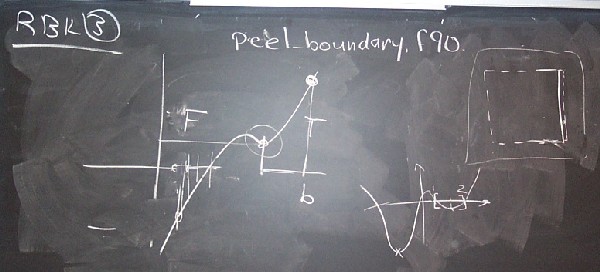 RBK③
peel_boundary.f90
F
b
2